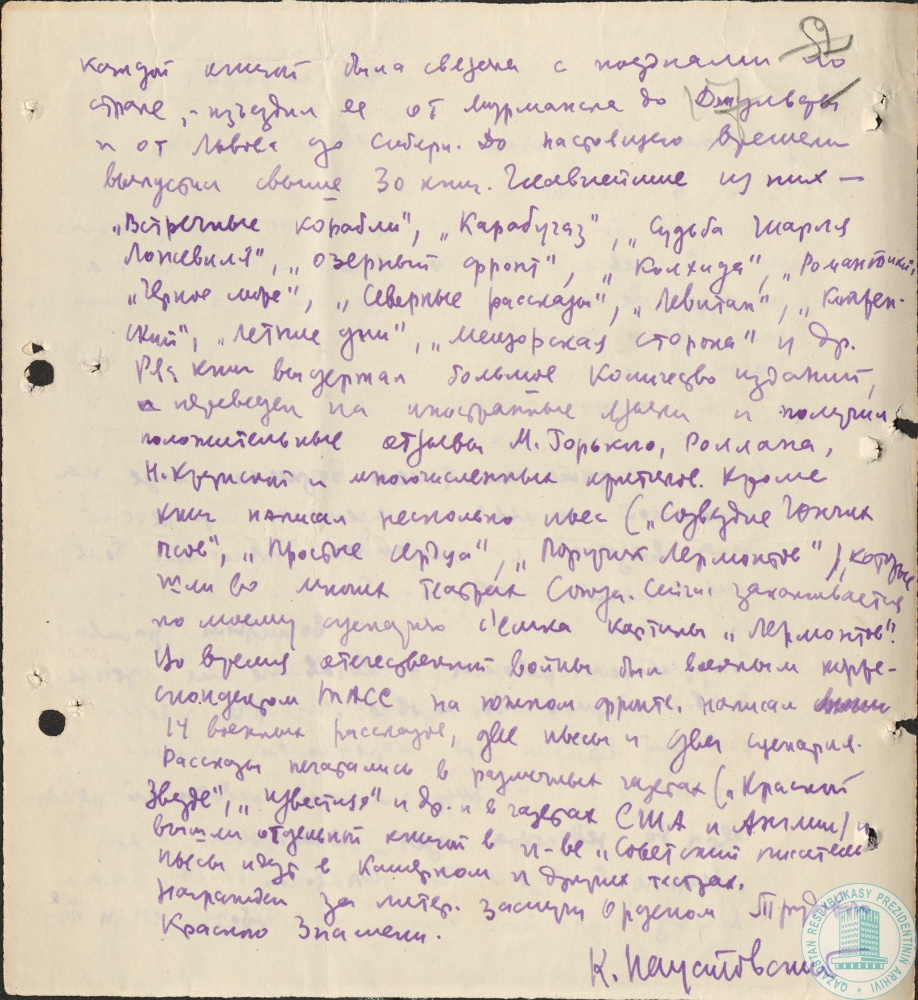 каждой книгой была связана с поездками по
стране, - изъездил ее от Мурманска до Джульфы
и от Львова до Сибири. До настоящего времени
выпустил свыше 30 книг. Главнейшие из них —
„Встречные корабли", „Карабугаз", „Судьба Шарля
Лонсевиля", „Озерный фронт", „Колхида", „Романтики",
„Черное море", „Северные рассказы", „Левитан", „Кипрен-
ский", „Летние дни", „Мещорская сторона" и др.
Ряд книг выдержал большое количество изданий,
переведен на иностранные языки и получил
положительные отзывы М. Горького, Роллана,
Н. Крупской и многочисленных критиков. Кроме
книг написал несколько пьес („Созвездие Гончих
псов", „Простые сердца", „Поручик Лермонтов"), которые
шли во многих театрах Союза. Сейчас заканчивается
по моему сценарию с'емка картины „Лермонтов".
Во время отечественной войны был военным корре-
спондентом ТАСС на южном фронте. Написал
14 военных рассказов, две пьесы и два сценария.
Рассказы печатались в различных газетах („Красной
Звезде", „Известия" и др. и в газетах США и Англии) и
вышли отдельной книгой в и-ве „Советский писатель"
Пьесы идут в Камерном и других театрах.
Награжден за литер. заслуги Орденом Трудового
Красного Знамени.
К. Паустовский
QAZAQSTAN RESPÝBLIKASY PREZIDENTINIŃ ARHIVI